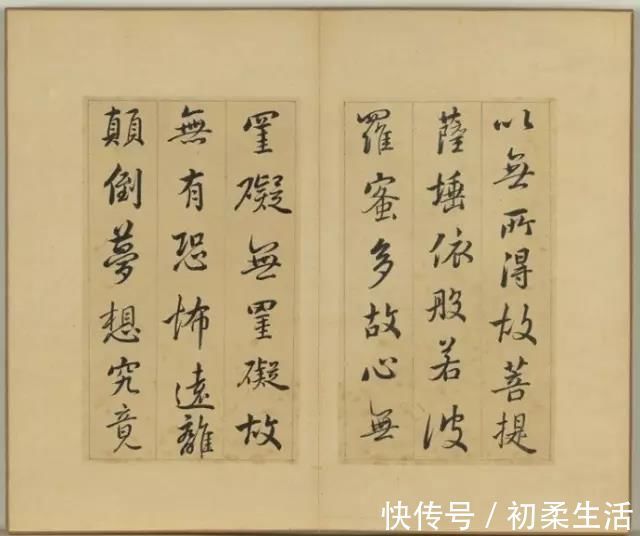 以無所得故菩提
薩埵依般若波
羅蜜多故心無
罣礙無罣礙故
無有恐怖遠離
顛倒夢想究竟
快传号/初柔生活